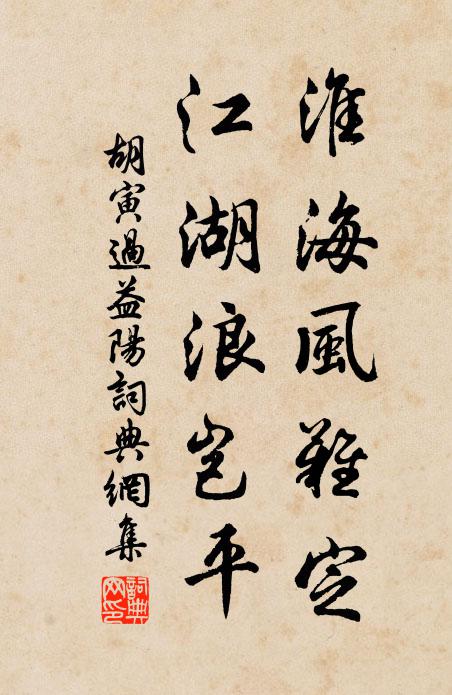 淮海風難定
江湖浪岂平
胡寅過益陽詞典網集
詞典網印